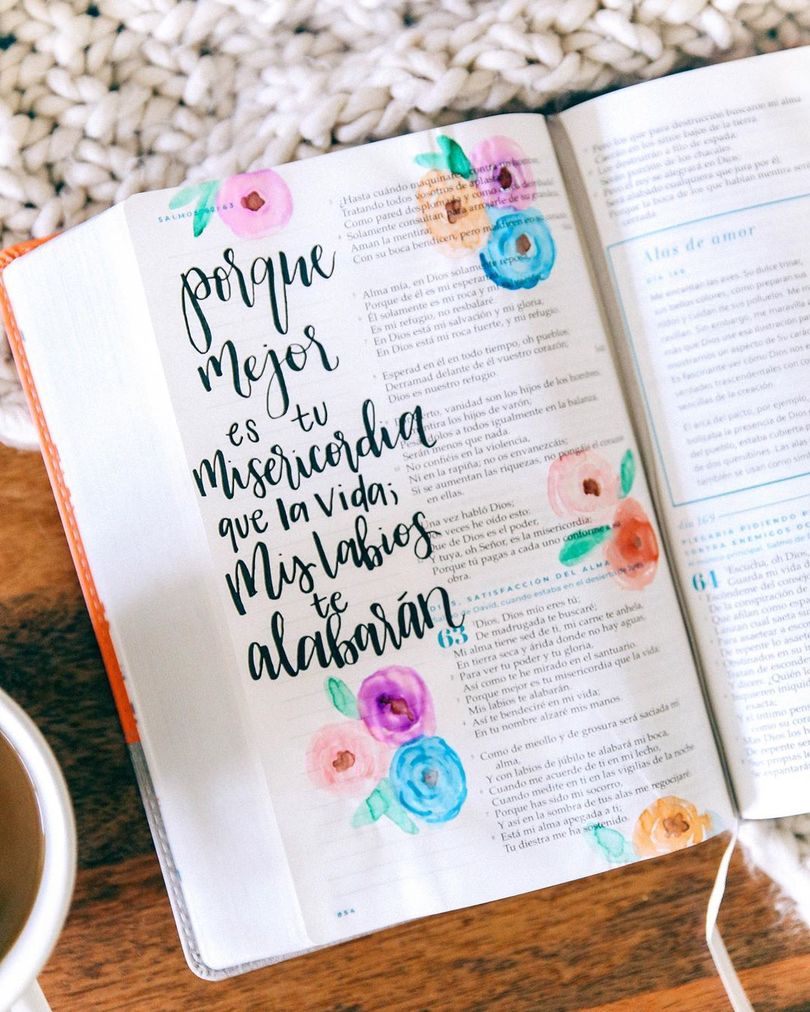 SALMOS
porque
mejor
es tu
misericordia
que la vida;
Mis labios
te
alabarán
¿Hasta cuándo maquinaréis contra un hombre,
Tratando todos vosotros de aplastarle
Como pared desplomada y como cerca derribada?
Solamente consultan para arrojarle de su grandeza.
Aman la mentira;
Con su boca bendicen, pero maldicen en su corazón.
Alma mía, en Dios solamente reposa,
Porque de él es mi esperanza.
Él solamente es mi roca y mi
Es mi refugio, no resbalaré.
En Dios está mi salvación y mi gloria,
En Dios está mi roca fuerte, y mi refugio.
Esperad en él en todo tiempo, oh pueblos;
Derramad delante de él vuestro corazón;
Dios es nuestro refugio.
vanidad son los hijos de los hombres,
los hijos de varón;
a todos igualmente en la balanza,
Serán menos que nada.
No confiéis en la violencia,
Ni en la rapiña; no os envanezcáis;
Si se aumentan las riquezas, no pongáis el corazón
en ellas.
Una vez habló Dios;
veces he oído esto:
Que de Dios es el poder,
Y tuya, oh Señor, es la misericordia;
Porque tú pagas a cada uno conforme a su
obra.
DIOS, SATISFACCIÓN DEL ALMA
de David, cuando estaba en el desierto de
63
Dios, Dios mío eres tú;
De madrugada te buscaré;
Mi alma tiene sed de ti, mi carne te anhela,
En tierra seca y árida donde no hay aguas,
Para ver tu poder y tu gloria,
Así como te he mirado en el santuario.
Porque mejor es tu misericordia que la vida;
Mis labios te alabarán.
Así te bendeciré en mi vida;
En tu nombre alzaré mis manos.
Como de meollo y de grosura será saciada mi
alma,
Y con labios de júbilo te alabará mi boca,
Cuando me acuerde de ti en mi lecho,
Cuando medite en ti en las vigilias de la noche
Porque has sido mi socorro,
Y así en la sombra de tus alas me regocijaré
Está mi alma apegada a ti;
Tu diestra me ha sostenido.
854
Pero los que para destrucción buscaron mi alma
Caerán en los sitios bajos de la tierra.
Los destruirán a filo de espada;
Serán porción de los chacales.
Pero el rey se alegrará en Dios;
Será alabado cualquiera que jura por él;
Porque la boca de los que hablan mentira será
cerrada.
Alas de amor
DÍA 168
Me encantan las aves. Su dulce trinar,
sus bellos colores, cómo preparan su
nidos y cuidan de sus polluelos. Me
rafían. Sin embargo, me maravilla
más que Dios use esa ilustración p
mostrarnos un aspecto de Su carác
Es fascinante ver cómo Dios nos e
verdades trascendentales con c
sencillas de la creación.
El arca del pacto, por ejemplo,
bolizaba la presencia de Dios
del pueblo, estaba cubierta
de dos querubines. Las ala
también se usan como sím
día 169
PLEGARIA PIDIENDO P
CONTRA ENEMIGOS O
Al músico principal. Salmo de
64
Escucha, oh Dio
Guarda mi vida d
Escóndeme del conse
De la conspiración de
Que afilan como espa